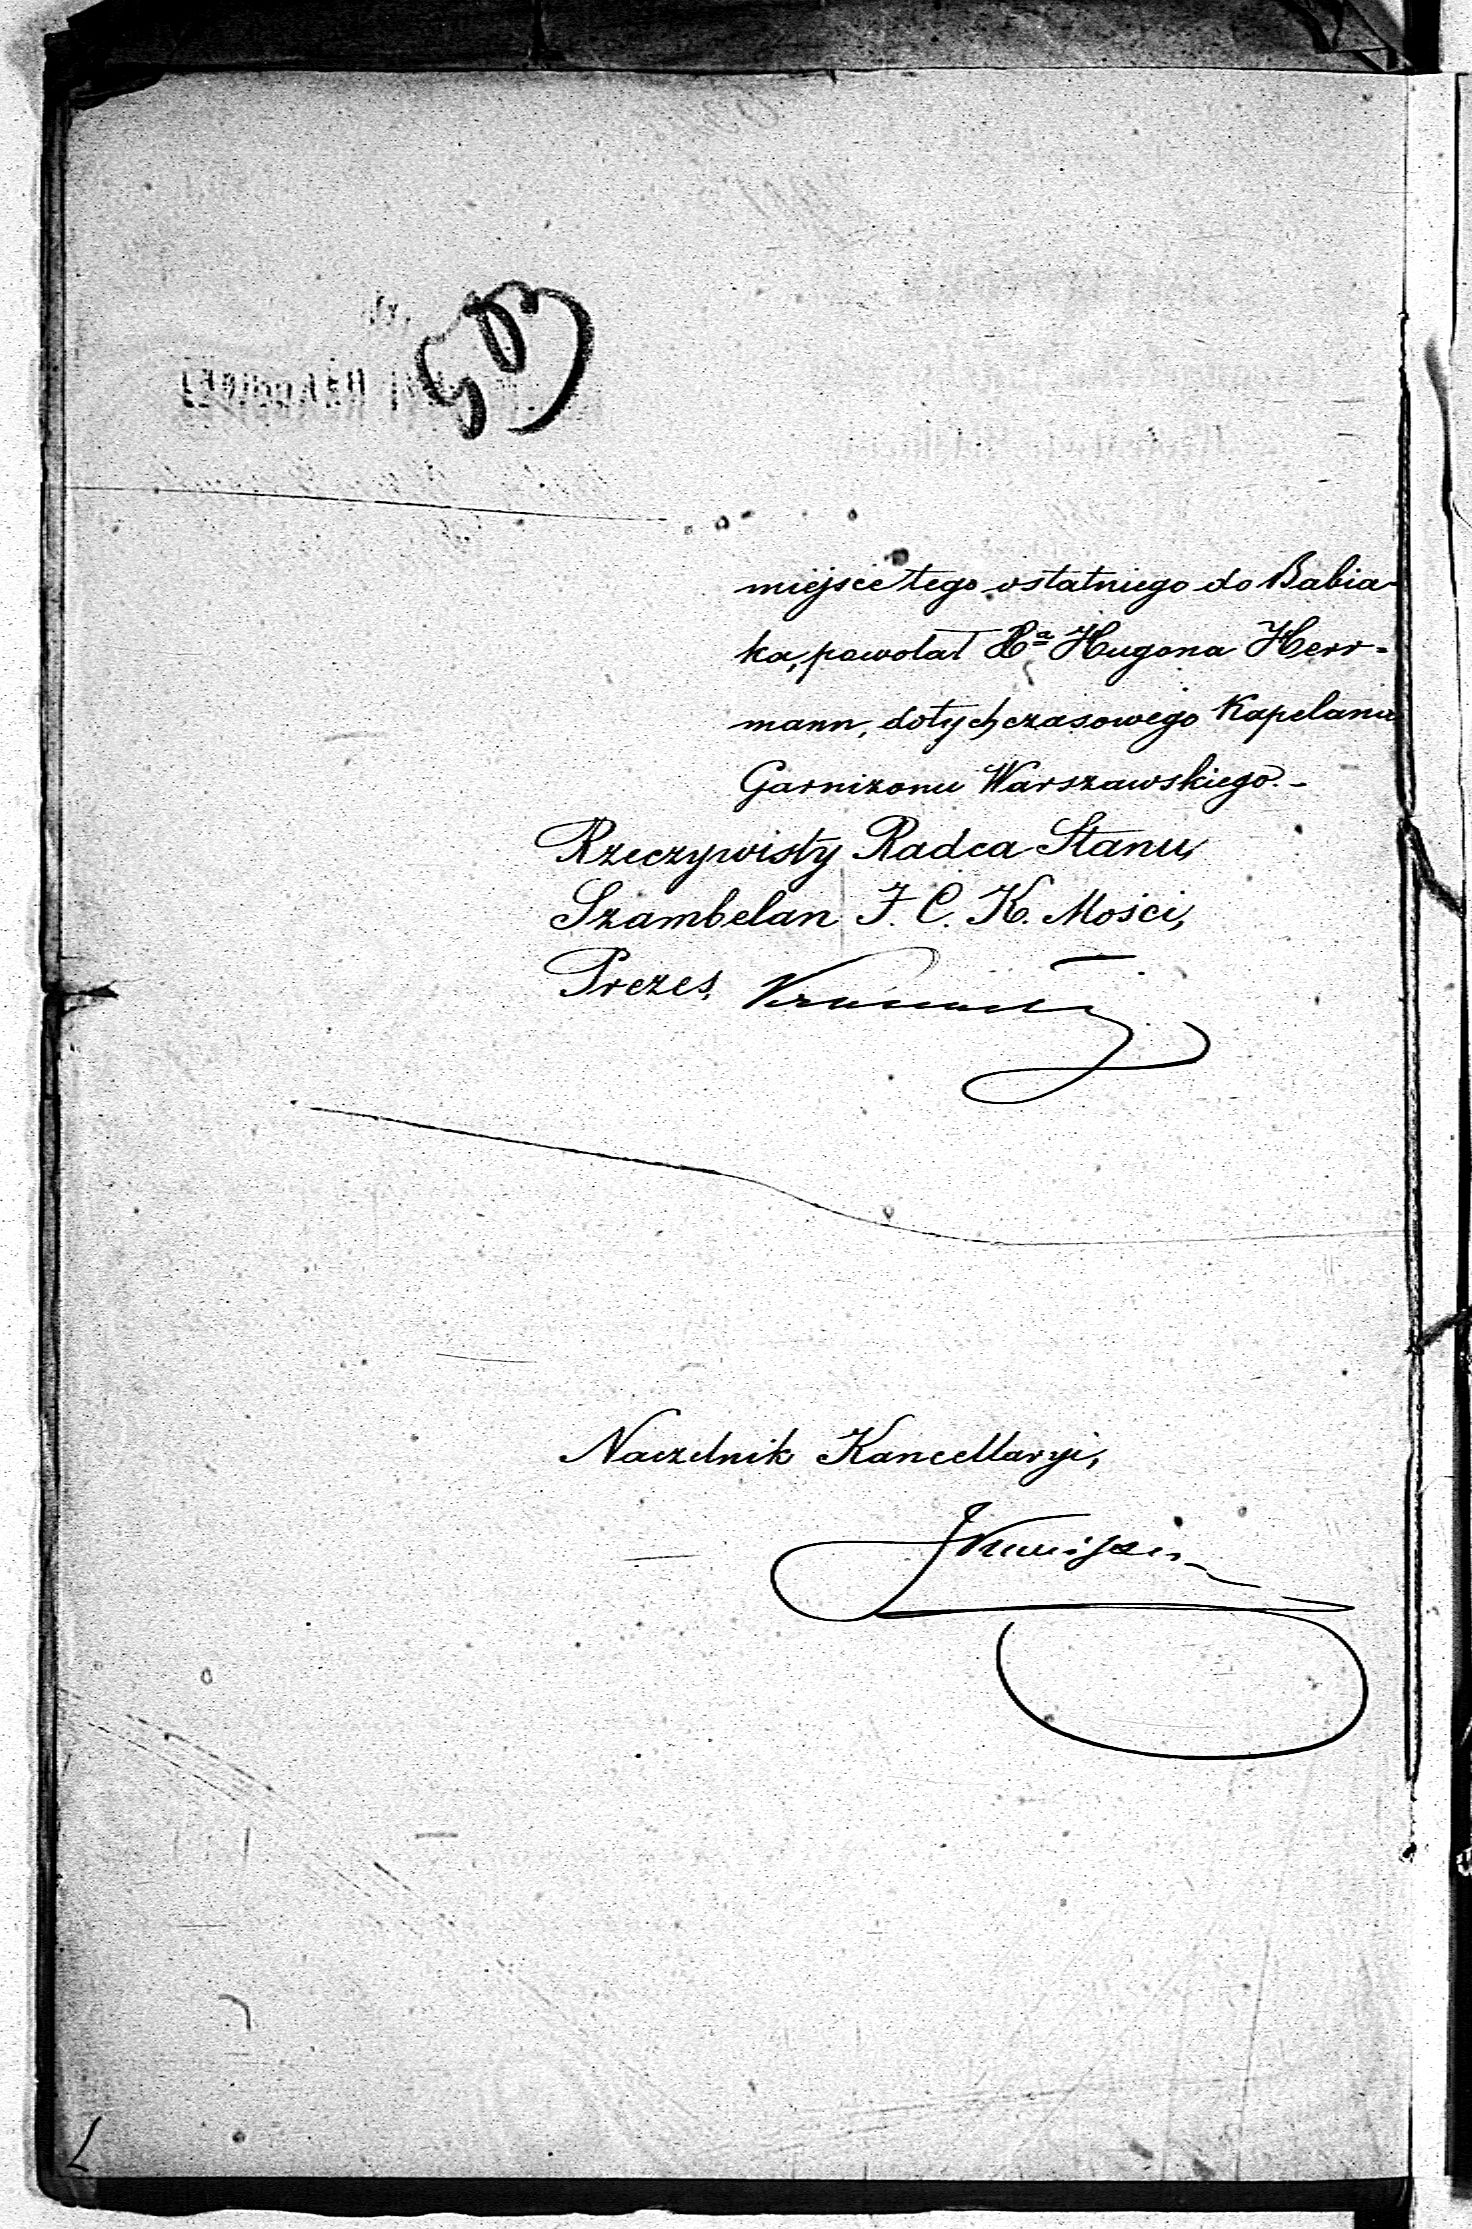 503
miejsce tego ostatniego do Babia-
ka, powołał Xª Hugona Herr-
mann, dotychczasowego Kapelana
Garnizonu Warszawskiego.-
Rzeczywisty Radca Stanu,
Szambelan J. C. K. Mości,
Prezes,
Naczelnik Kancellaryi,